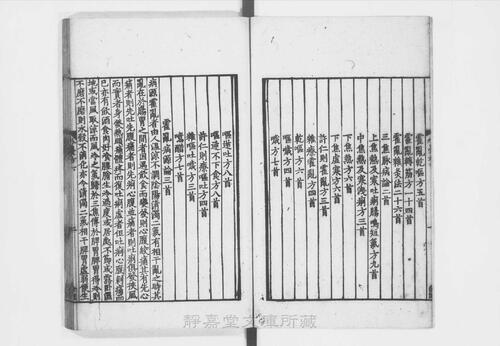 霍亂乾嘔方五首
霍亂轉筋方一十四首
霍亂雜灸法二十六首
三焦脉病論二首
上焦熱及寒吐痢腸鳴短氣方九首
中焦熱及寒洩痢方三首
下焦熱方六首
下焦虚寒方六首
雜療霍亂方四首
許仁則霍亂方三首
乾嘔方六首
嘔噦方四首
噦方七首
嘔逆吐方八首
嘔逆不下食方八首
許仁則療嘔吐方四首
雜嘔吐噦方三首
噫醋方七首
霍亂病源論三首
病源霍亂者由人温涼不調陰陽清濁二氣有相干亂之時其
亂在於腸胃之間者因遇飲食而變發則心腹絞痛其有先心
痛者則先吐先腹痛者則先痢心腹並痛者則吐痢俱發挾風
而實者身發熱頭痛體疼而復吐痢虚者但吐痢心腹刺痛而
已亦有飲酒食肉好飡腥膾生冷過度或因居處不節或露卧濕
地或當風取涼而風冷之氣歸於三焦傳於脾胃脾胃得冷則
不磨不磨則水穀不消化亦令清濁二氣相干脾胃虚弱便生
靜嘉堂文庫所藏